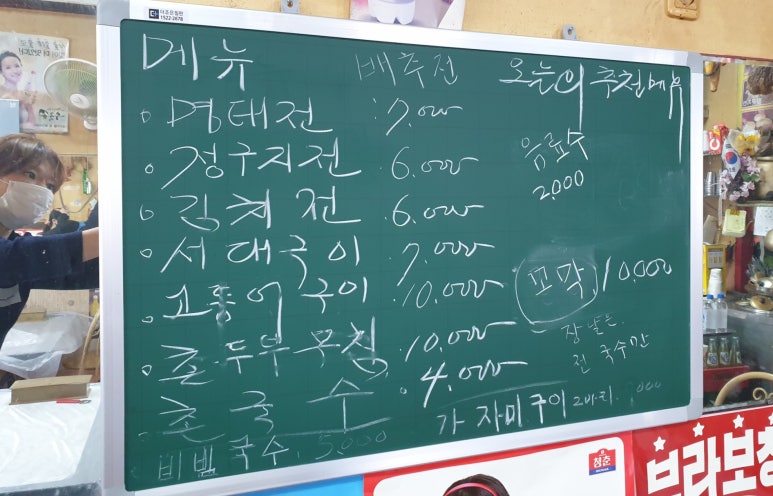 메뉴 배추전 오늘의 추천메뉴
명태전 7.000
정구지전 6.000
김치전 6.000
서대구이 7.000
고등어구이 10.000
촌두부무침 10.000
촌국수 4.000
비빔국수 5.000
음료수
2.000
꼬막 10.000
장날은
전 국수만
가자미구이 2마리
1522-2678
청춘